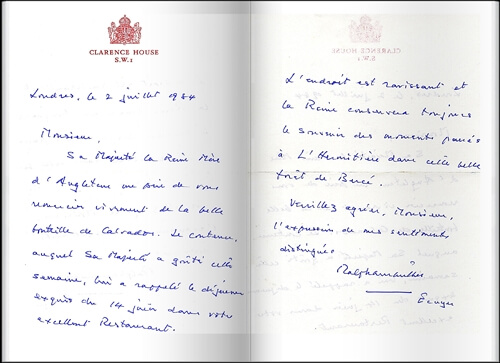 CLARENCE HOUSE
S.W.1
Londres, le 2 juillet 1984
Monsieur,
Sa Majesté la Reine Mère
d'Angleterre me prie de vous
remercier vivement de la belle
bouteille de Calvados. Le contenu,
auquel Sa Majesté a goûté cette
semaine, lui a rappelé le déjeuner
exquis du 14 juin dans votre
excellent Restaurant.
L'endroit est ravissant et
la Reine conservera toujours
le souvenir des moments passés
à L'Hermitière dans cette belle
forêt de Bercé.
Veuillez agréer, Monsieur,
l'expression de mes sentiments
distingués
Ecuyer